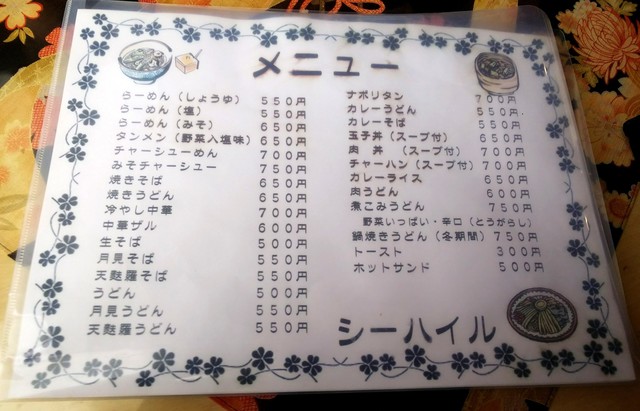 メニュー
らーめん（しょうゆ） 550円
らーめん（塩） 550円
らーめん（みそ） 650円
タンメン（野菜入塩味） 650円
チャーシューめん 700円
みそチャーシュー 750円
焼きそば 650円
焼きうどん 650円
冷やし中華 700円
中華ザル 600円
生そば 500円
月見そば 550円
天麩羅そば 550円
うどん 500円
月見うどん 550円
天麩羅うどん 550円
ナポリタン 700円
カレーうどん 550円
カレーそば 550円
玉子丼（スープ付） 650円
肉 丼 （スープ付） 700円
チャーハン（スープ付） 700円
カレーライス 650円
肉うどん 600円
煮こみうどん 750円
野菜いっぱい・辛口（とうがらし）
鍋焼きうどん（冬期間） 750円
トースト 300円
ホットサンド 500円
シーハイル